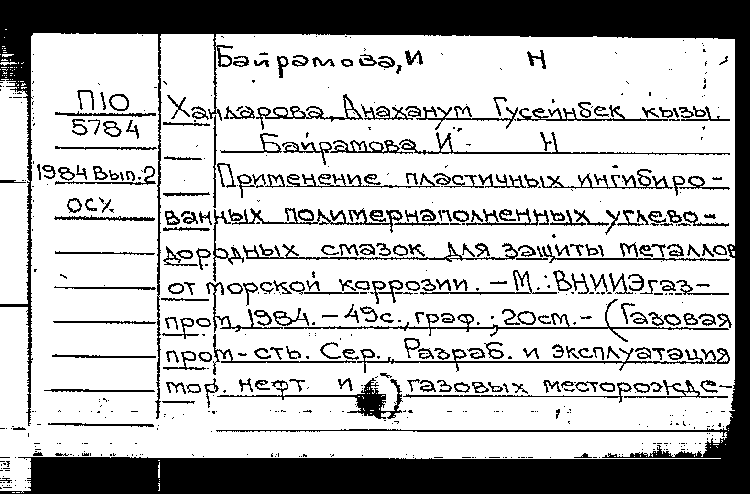 Байрамова, И Н
П10
5784
1984 Вып.2
осх
Ханларова, Анаханум Гусейнбек кызы.
Байрамова, И. Н
Применение пластичных ингибиро-
ванных полимернаполненных углево-
дородных смазок для защиты металлов
от морской коррозии. - М.: ВНИИЭгаз-
пром, 1984. - 49с., граф.; 20см. - (Газовая
пром-сть. Сер., Разраб. и эксплуатация
мор. нефт. и газовых месторожде-